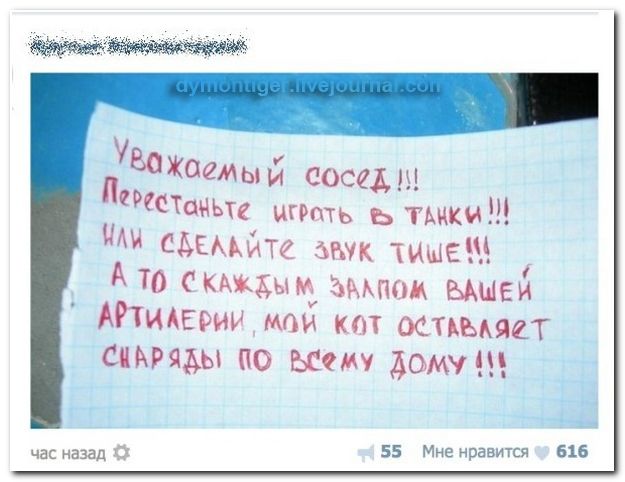 dymontiger.livejournal.com
Уважаемый сосед!!!
Перестаньте играть в танки!!!
или сделайте звук тише!!!
А то скаждым залпом вашей
артилерии, мой кот оставляет
снаряды по всему дому!!!
час назад
55 Мне нравится 616